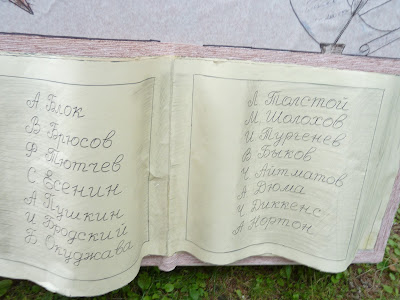 А Блок
В Брюсов
Ф Тютчев
С Есенин
А Пушкин
И Бродский
Б Окуджава
Л Толстой
М Шолохов
И Тургенев
В Быков
Ч Айтматов
А Дюма
Ч Диккенс
А Нортон